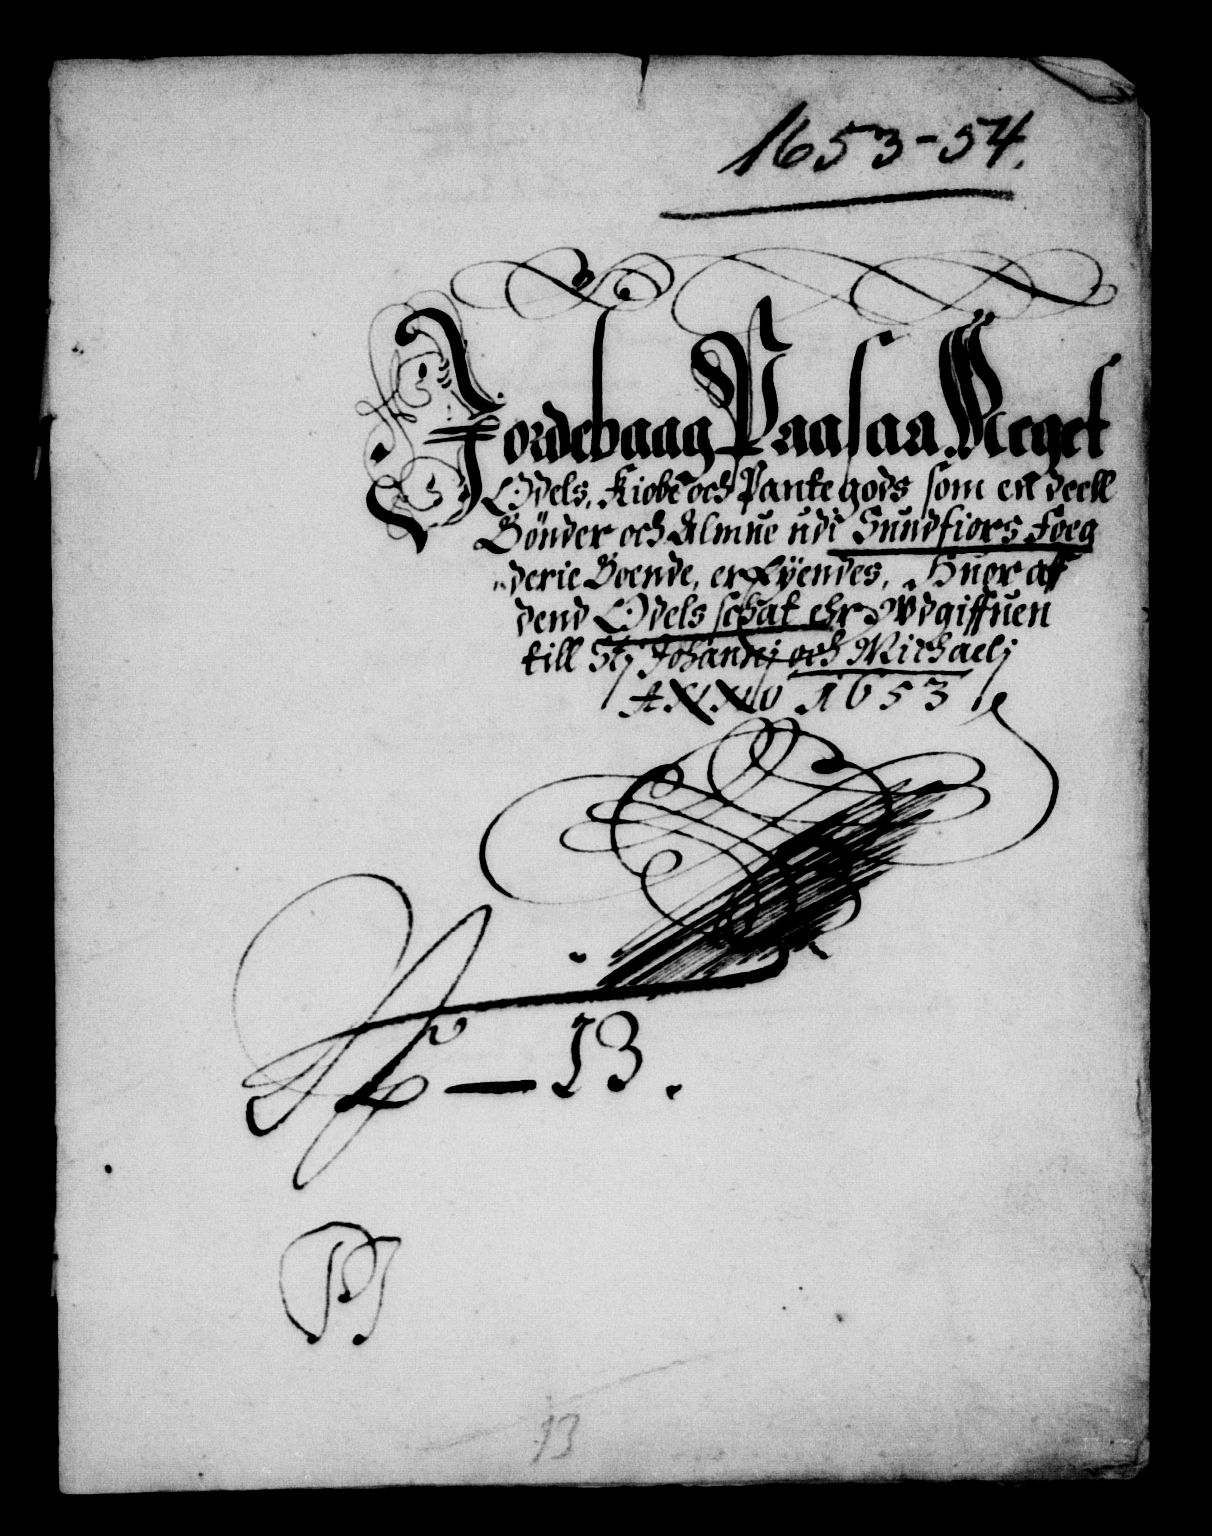 1653-54.
Jordebaag Paa saa Meget
Odels, Kiobe och Pantegods som en deell
Bönder och Almue udi Sundfiors Foeg
derie Boende, er Eÿendes, Huor aff
dend Odels schat ehr Wdgiffuen
till Stj Johannj och Michaelj
ANNO 1653
No — 13.
13